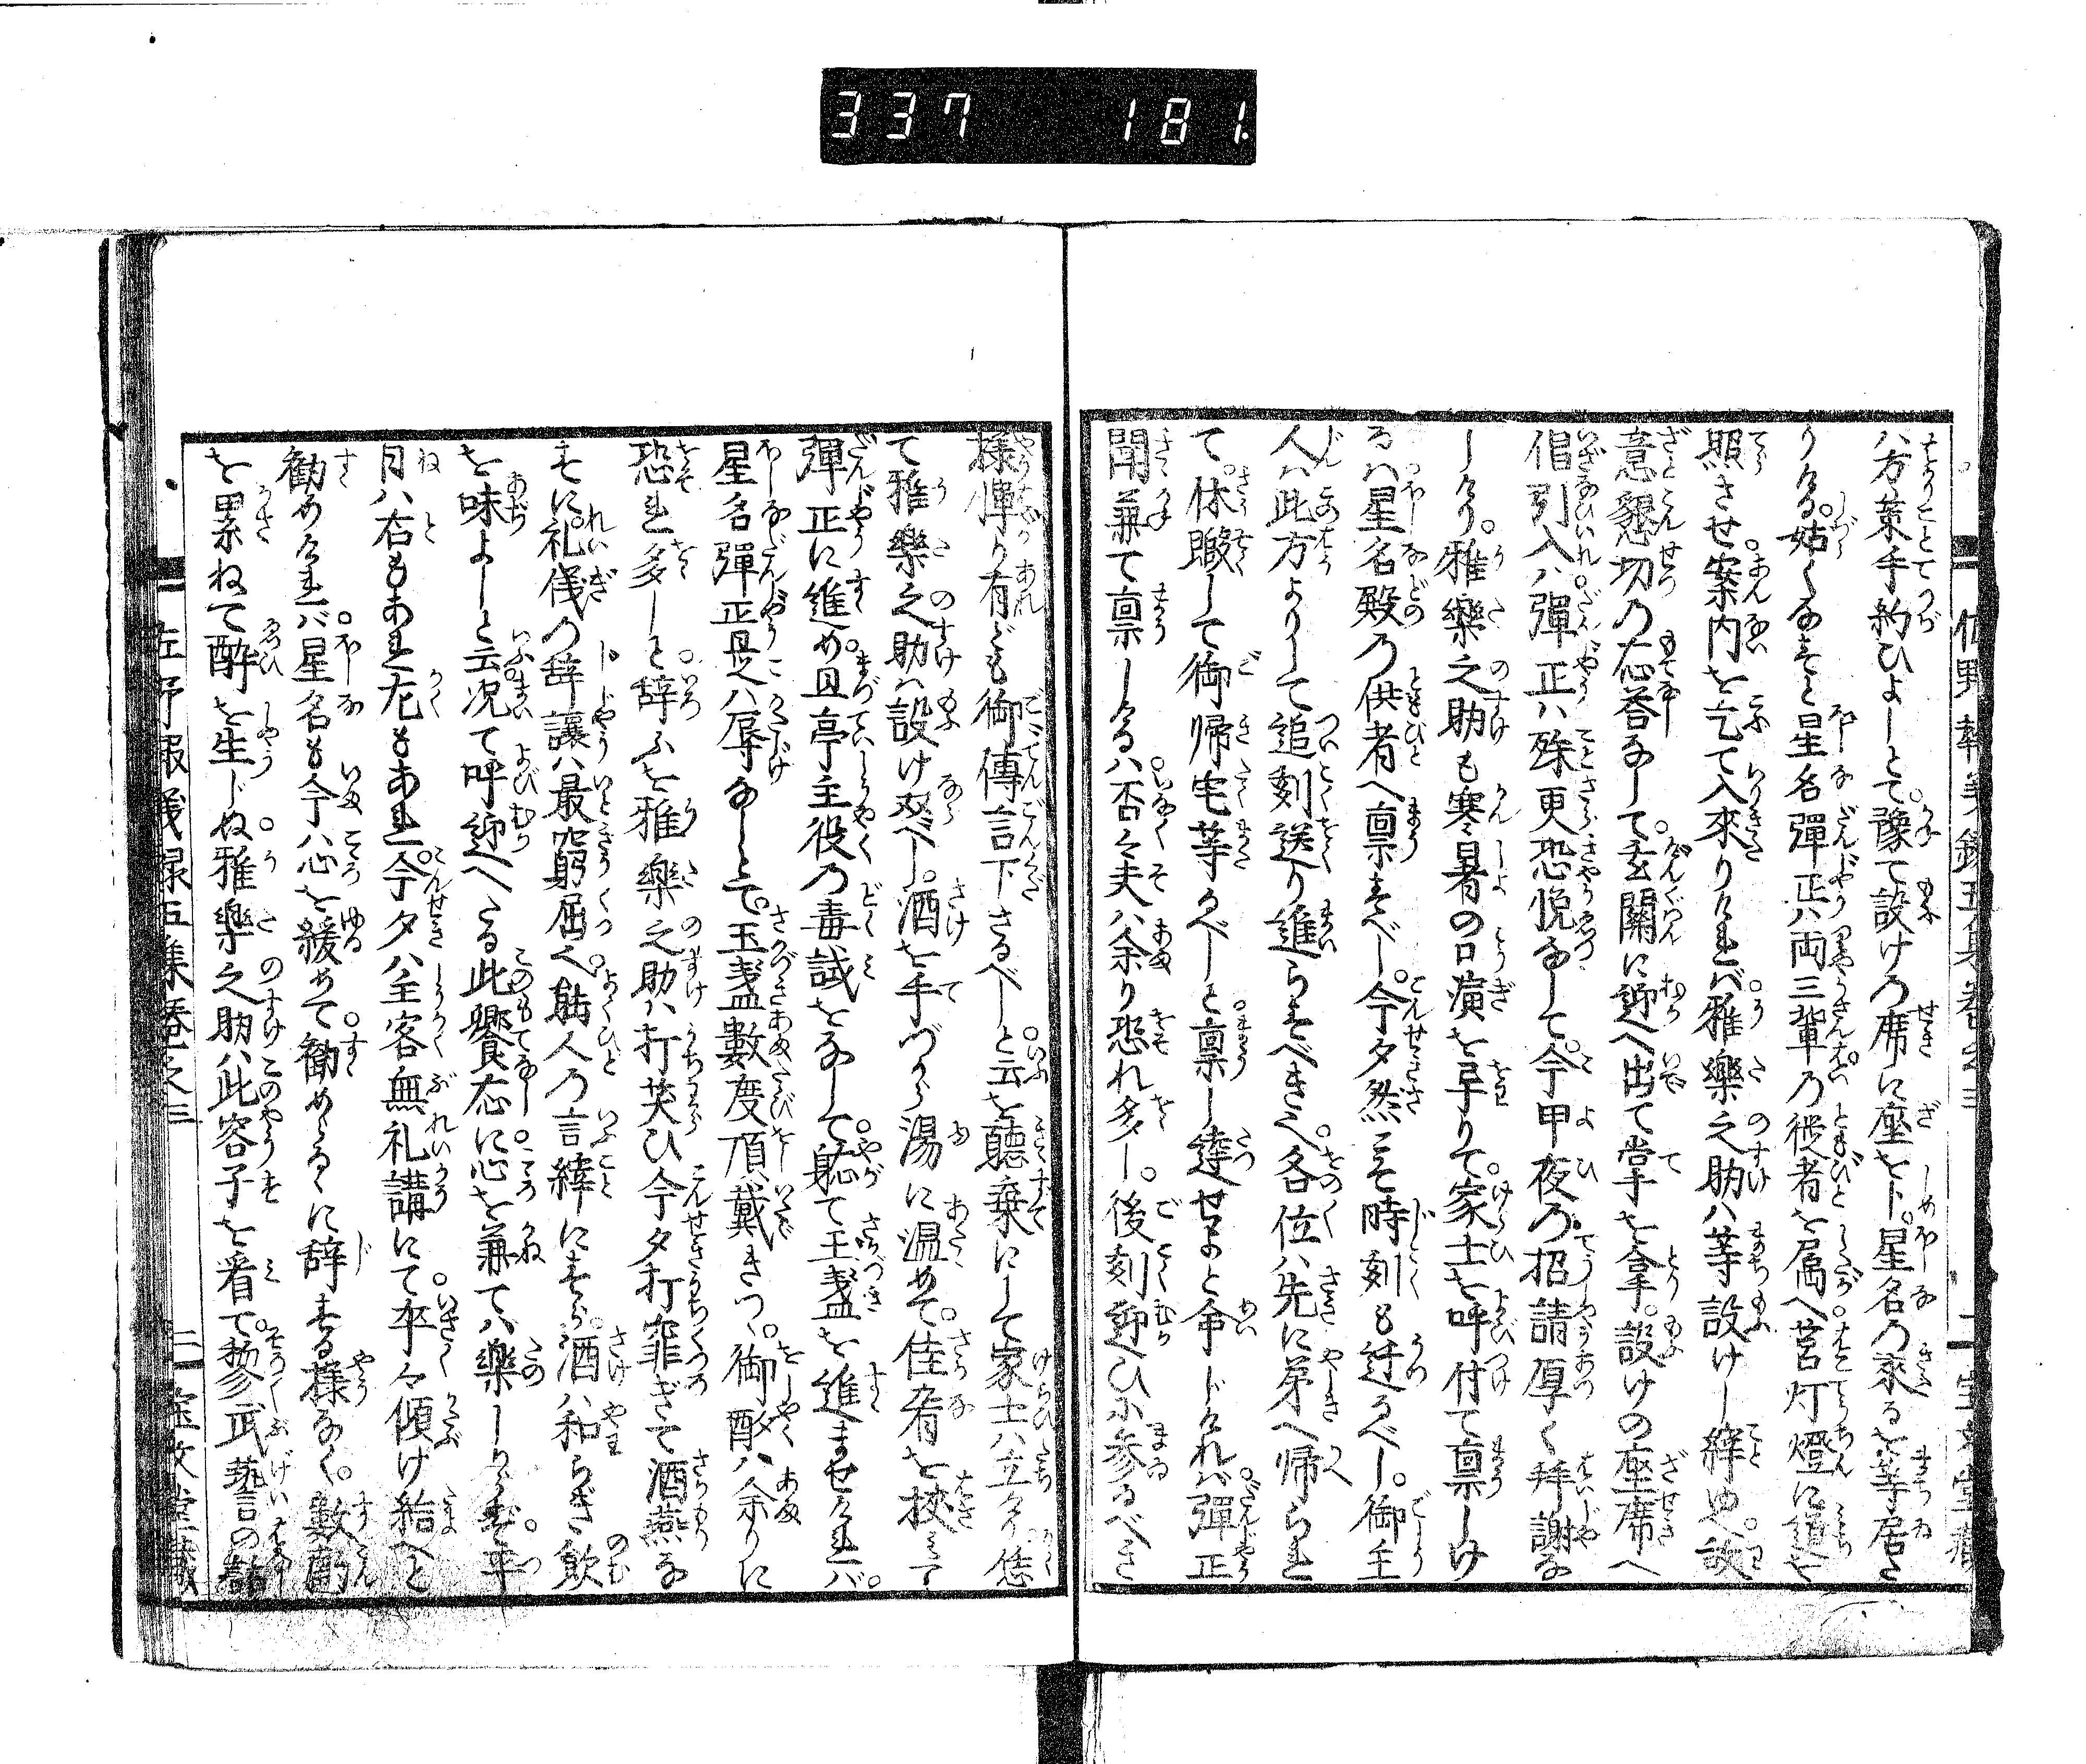 337 181
佐野報義録五集巻之三 二 宝文堂蔵
八方葉手約ひよしとて豫て設けの席に座をト星名の來るを等居た
りける姑くなすと星名彈正ハ両三輩の従者を属へ筥灯燈に道を
照させ案内を乞て入來りけれバ雅樂之助ハ等設けし縡ゆゑ
意懇切の応答なして玄關に迎へ出て掌を拿設けの座席へ
倡引入ハ彈正ハ殊更恐悦なして今甲夜の招請厚く拜謝な
しけり雅樂之助も寒暑の口演を早りて家士を呼付て禀しけ
るハ星名殿の供者へ禀すべし今夕然こそ時刻も迁るべし御主
人ハ此方よりして追刻送り進らすべきニ各位ハ先に第へ帰られ
て休暇して御帰宅等べしと禀し達せよと命じけれバ彈正
聞兼て禀しけるハ否々夫ハ余り恐れ多し後刻迎ひに参るべき
樣憚り有ども御傳言下さるべしと云を聽棄にして家士ハ立けり恁
て雅樂之助ハ設け双べし酒を手づから湯に温めて佳肴を挍ミて
彈正に進め且亭主役の毒試をなして軈て玉盞を進ませけれバ
星名彈正是ハ辱なしとて玉盞數度頂戴きつゝ御酌ハ余りに
恐れ多しと辞ふを雅樂之助ハ打笑ひ今夕打寉ぎて酒燕な
すに礼儀の辞讓ハ最窮屈く能人の言縡にすら酒ハ和らぎ飲
を味よしと云况て呼迎へたる此饗応に心を兼てハ樂しからず平
日ハ右もあれ左もあれ今夕ハ主客無礼講にて卒々傾け給へと
勧めけれバ星名も今ハ心を緩めて勧めらるゝに辞する樣なく數酌
を累ねて酔を生じぬ雅樂之助ハ此容子を看て漸々武藝の話
佐野報義録五集巻之三 三 宝文堂蔵